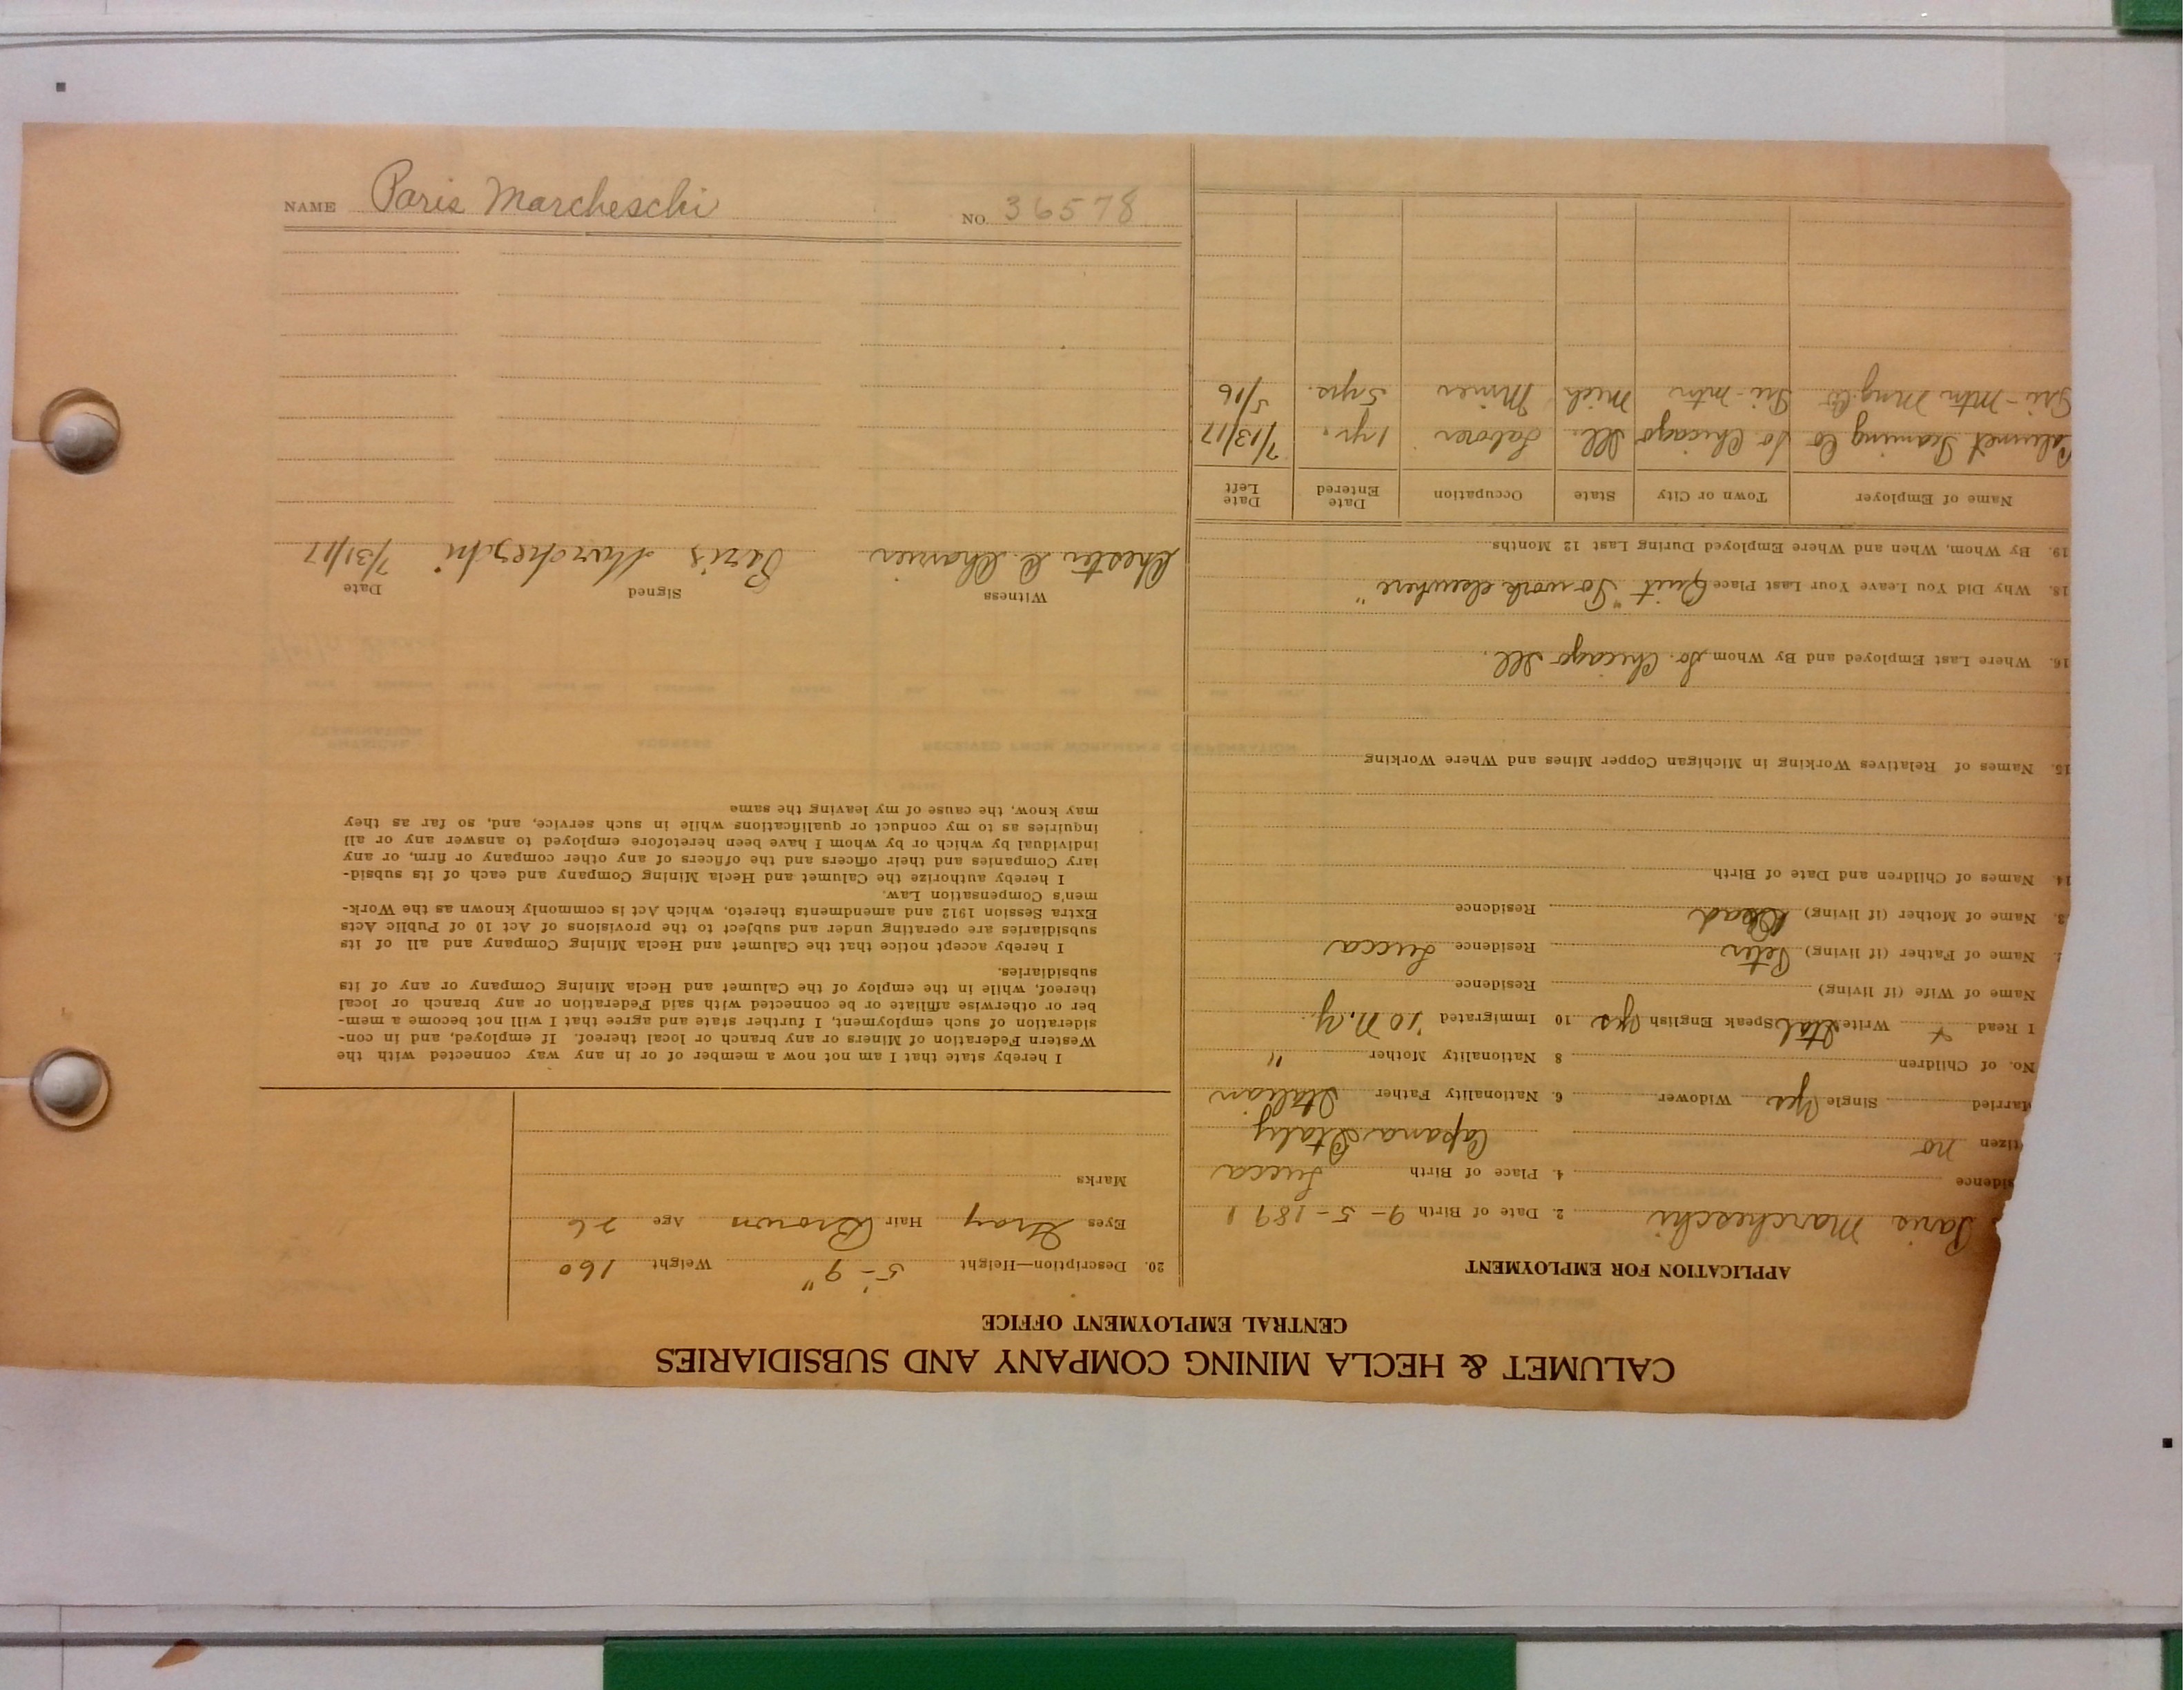 CALUMET & HECLA MINING COMPANY AND SUBSIDIARIES
CENTRAL EMPLOYMENT OFFICE
APPLICATION FOR EMPLOYMENT
Paris Marcheschi 2. Date of Birth 9-5-1891
sidence 4. Place of Birth Lucca
tizen no Capana Italy
arried Single Yes Widower 6. Nationality Father Italian
No. of Children 8 Nationality Mother "
I Read x Write Ital Speak English Yes 10 Immigrated '10 N.Y.
Name of Wife (if living) Residence
Name of Father (if living) Peter Residence Lucca
3. Name of Mother (if living) Dead Residence
14. Names of Children and Date of Birth
15. Names of Relatives Working in Michigan Copper Mines and Where Working
16. Where Last Employed and By Whom So. Chicago Ill.
18. Why Did You Leave Your Last Place Quit "To work elsewhere"
19. By Whom, When and Where Employed During Last 12 Months
Name of Employer Town or City State Occupation Date Entered Date Left
Calumet Co So. Chicago Ill. Laborer 1 yr. 7/13/17
Tri-Mtn Mng. Co Tri-Mtn Mich Miner 5 yrs. 5/16
20. Description—Height 5'-9" Weight 160
Eyes Gray Hair Brown Age 26
Marks
I hereby state that I am not now a member of or in any way connected with the
Western Federation of Miners or any branch or local thereof. If employed, and in con-
sideration of such employment, I further state and agree that I will not become a mem-
ber or otherwise affiliate or be connected with said Federation or any branch or local
thereof, while in the employ of the Calumet and Hecla Mining Company or any of its
subsidiaries.
I hereby accept notice that the Calumet and Hecla Mining Company and all of its
subsidiaries are operating under and subject to the provisions of Act 10 of Public Acts
Extra Session 1912 and amendments thereto, which Act is commonly known as the Work-
men's Compensation Law.
I hereby authorize the Calumet and Hecla Mining Company and each of its subsid-
iary Companies and their officers and the officers of any other company or firm, or any
individual by which or by whom I have been heretofore employed to answer any or all
inquiries as to my conduct or qualifications while in such service, and, so far as they
may know, the cause of my leaving the same
Witness Signed Date
Chester C. Paris Marcheschi 7/31/17
NAME Paris Marcheschi NO. 36578